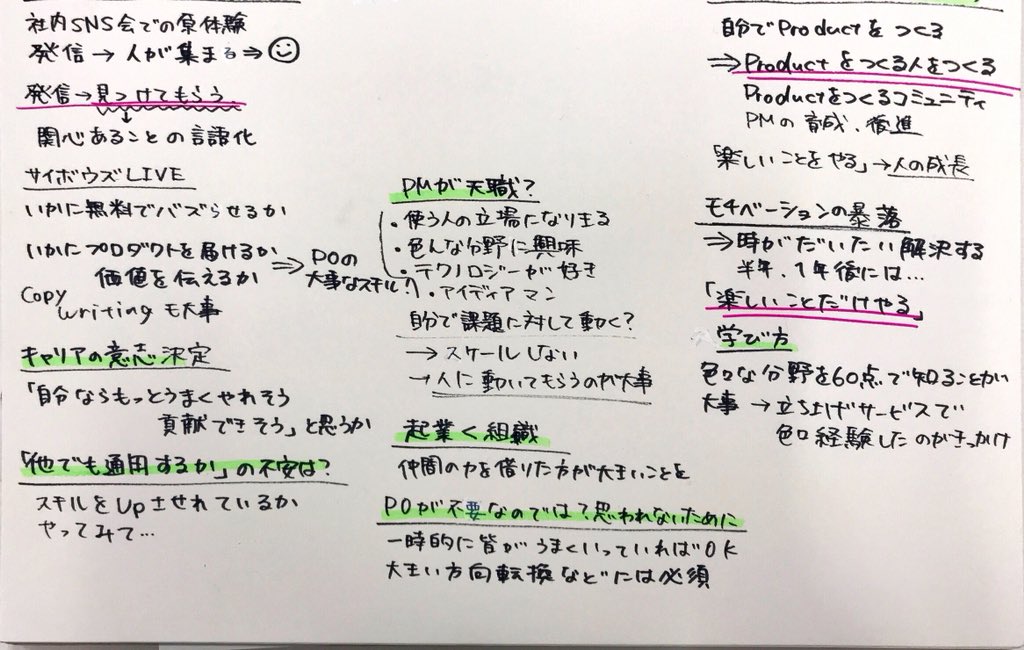 社内SNS会での原体験
発信→人が集まる⇒
発信→見つけてもらう
関心あることの言語化
サイボウズLIVE
いかに無料でバズらせるか
いかにプロダクトを届けるか
価値を伝えるか
⇒POの
大事なスキル?
Copy
writingも大事
キャリアの意志決定
「自分ならもっとうまくやれそう
貢献できそう」と思うか
「他でも通用するか」の不安は?
スキルをUpさせれているか
やってみて…
PMが天職?
・使う人の立場になりきる
・色んな分野に興味
・テクノロジーが好き
・アイディアマン
自分で課題に対して動く?
→スケールしない
→人に動いてもらうのが大事
起業<組織
仲間の力を借りた方が大きいことを
POが不要なのでは?思われないために
一時的に皆がうまくいっていればOK
大きい方向転換などには必須
自分でProductをつくる
⇒Productをつくる人をつくる
Productをつくるコミュニティ
PMの育成、後進
「楽しいことをやる」→人の成長
モチベーションの暴落
⇒時がだいたい解決する
半年、1年後には…
「楽しいことだけやる」
学び方
色々な分野を60点で知ることが
大事→立ち上げサービスで
色々経験したのがきっかけ